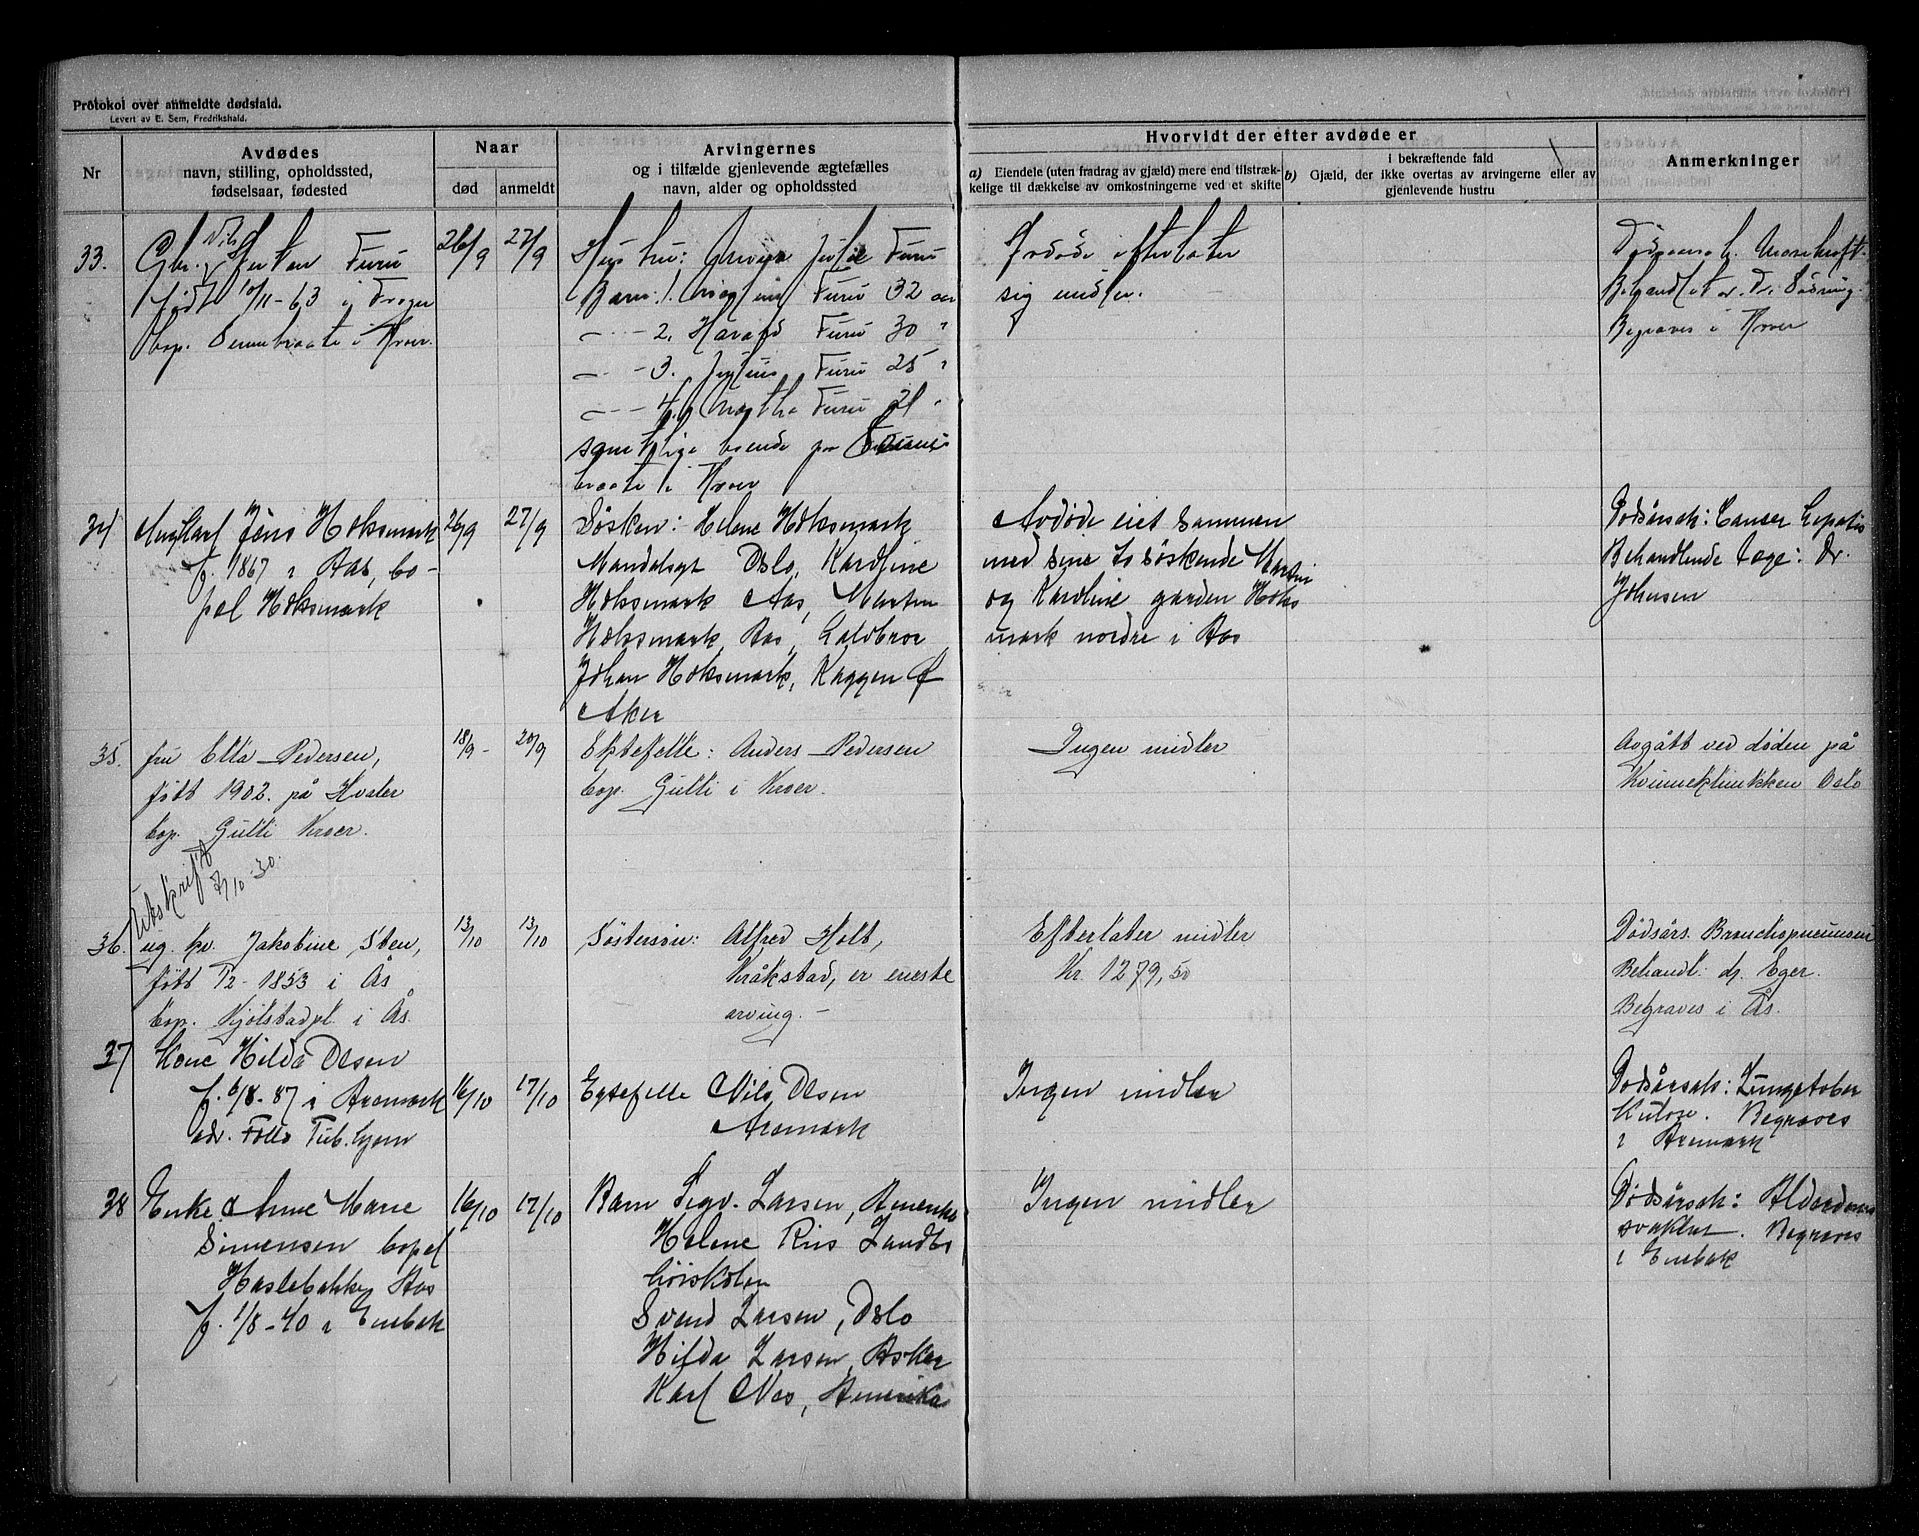 Protokol over anmeldte dødsfald.
Levert av E. Sem, Fredrikshald.
Nr
Avdødes
navn, stilling, opholdssted,
fødselsaar, fødested
Naar
død
anmeldt
Arvingernes
og i tilfælde gjenlevende ægtefælles
navn, alder og opholdssted
Hvorvidt der efter avdøde er
a) Eiendele (uten fradrag av gjæld) mere end tilstræk-
kelige til dækkelse av omkostningerne ved et skifte
I bekræftende fald
b) Gjæld, der ikke overtas av arvingerne eller av
gjenlevende hustru
Anmerkninger
33.
Gbr. Nils Furu
født 10/11-63 i
bop. i Kroer.
26/9
27/9
Hustru: Julie Furu
Barn: 1. Furu 32 aar
— - 2. Harald Furu 30 "
— - 3. Julius Furu 25 "
— - 4. Martha Furu 21 "
samtlige boende paa
braate i Kroer
Avdøde efterlater
sig midler.
Dødsaarsak.
Behandlet av Dr.
Begraves i Kroer
34
Ungkarl Jens Hoksmark
f. 1867 i Aas, bo-
pel Hoksmark
26/9
27/9
Søsken: Helene Hoksmark
Mandalsgt Oslo, Karoline
Hoksmark Aas, Martin
Hoksmark, Aas, Halvbror
Johan Hoksmark, Kaggen
Aker
Avdøde eiet sammen
med sine to søskende Martin
og Karoline garden Hoks
mark nordre i Aas
Dødsårsak: Cancer hepatis
Behandlende læge: Dr.
Johnsen
35.
fru Ella Pedersen,
født 1902 på Hvaler
bop. Gulli Kroer.
18/9 -
20/9
Ektefelle: Anders Pedersen
bop. Gulli i Kroer.
Ingen midler
Avgått ved døden på
Kvinneklinikken Oslo
Utskrift
7/10-30.
36.
ug. kv. Jakobine Sten,
født 1/2-1853 i Ås
bop. Kjølstadpl. i Ås.
13/10
13/10
Søstersøn: Alfred Holt,
Kråkstad, er eneste
arving. -
Efterlater midler
Kr. 1279,50
Dødsårs. Bronchopneumoni
Behandl: dr. Eger.
Begraves i Ås.
37
Kone Hilda Olsen
f. 6/8-87 i Aremark
adr. Follo Tub.hjem
16/10
17/10
Egtefelle Nils Olsen
Aremark
Ingen midler
Dødsårsak: Lungetuber
kulose. Begraves
i Aremark
38
Enke Anne Marie
Simensen bopel
Haslebakken Aas
f. 1/8-40 i Enebak
16/10
17/10
Barn Sigv. Larsen, Amerika
Helene Riis Landbr
høiskolen
Svend Larsen, Oslo
Hilda Larsen, Asker
Karl Nes, Amerika
Ingen midler
Dødsårsak: Alderdoms
svakhet. Begraves
i Enebak